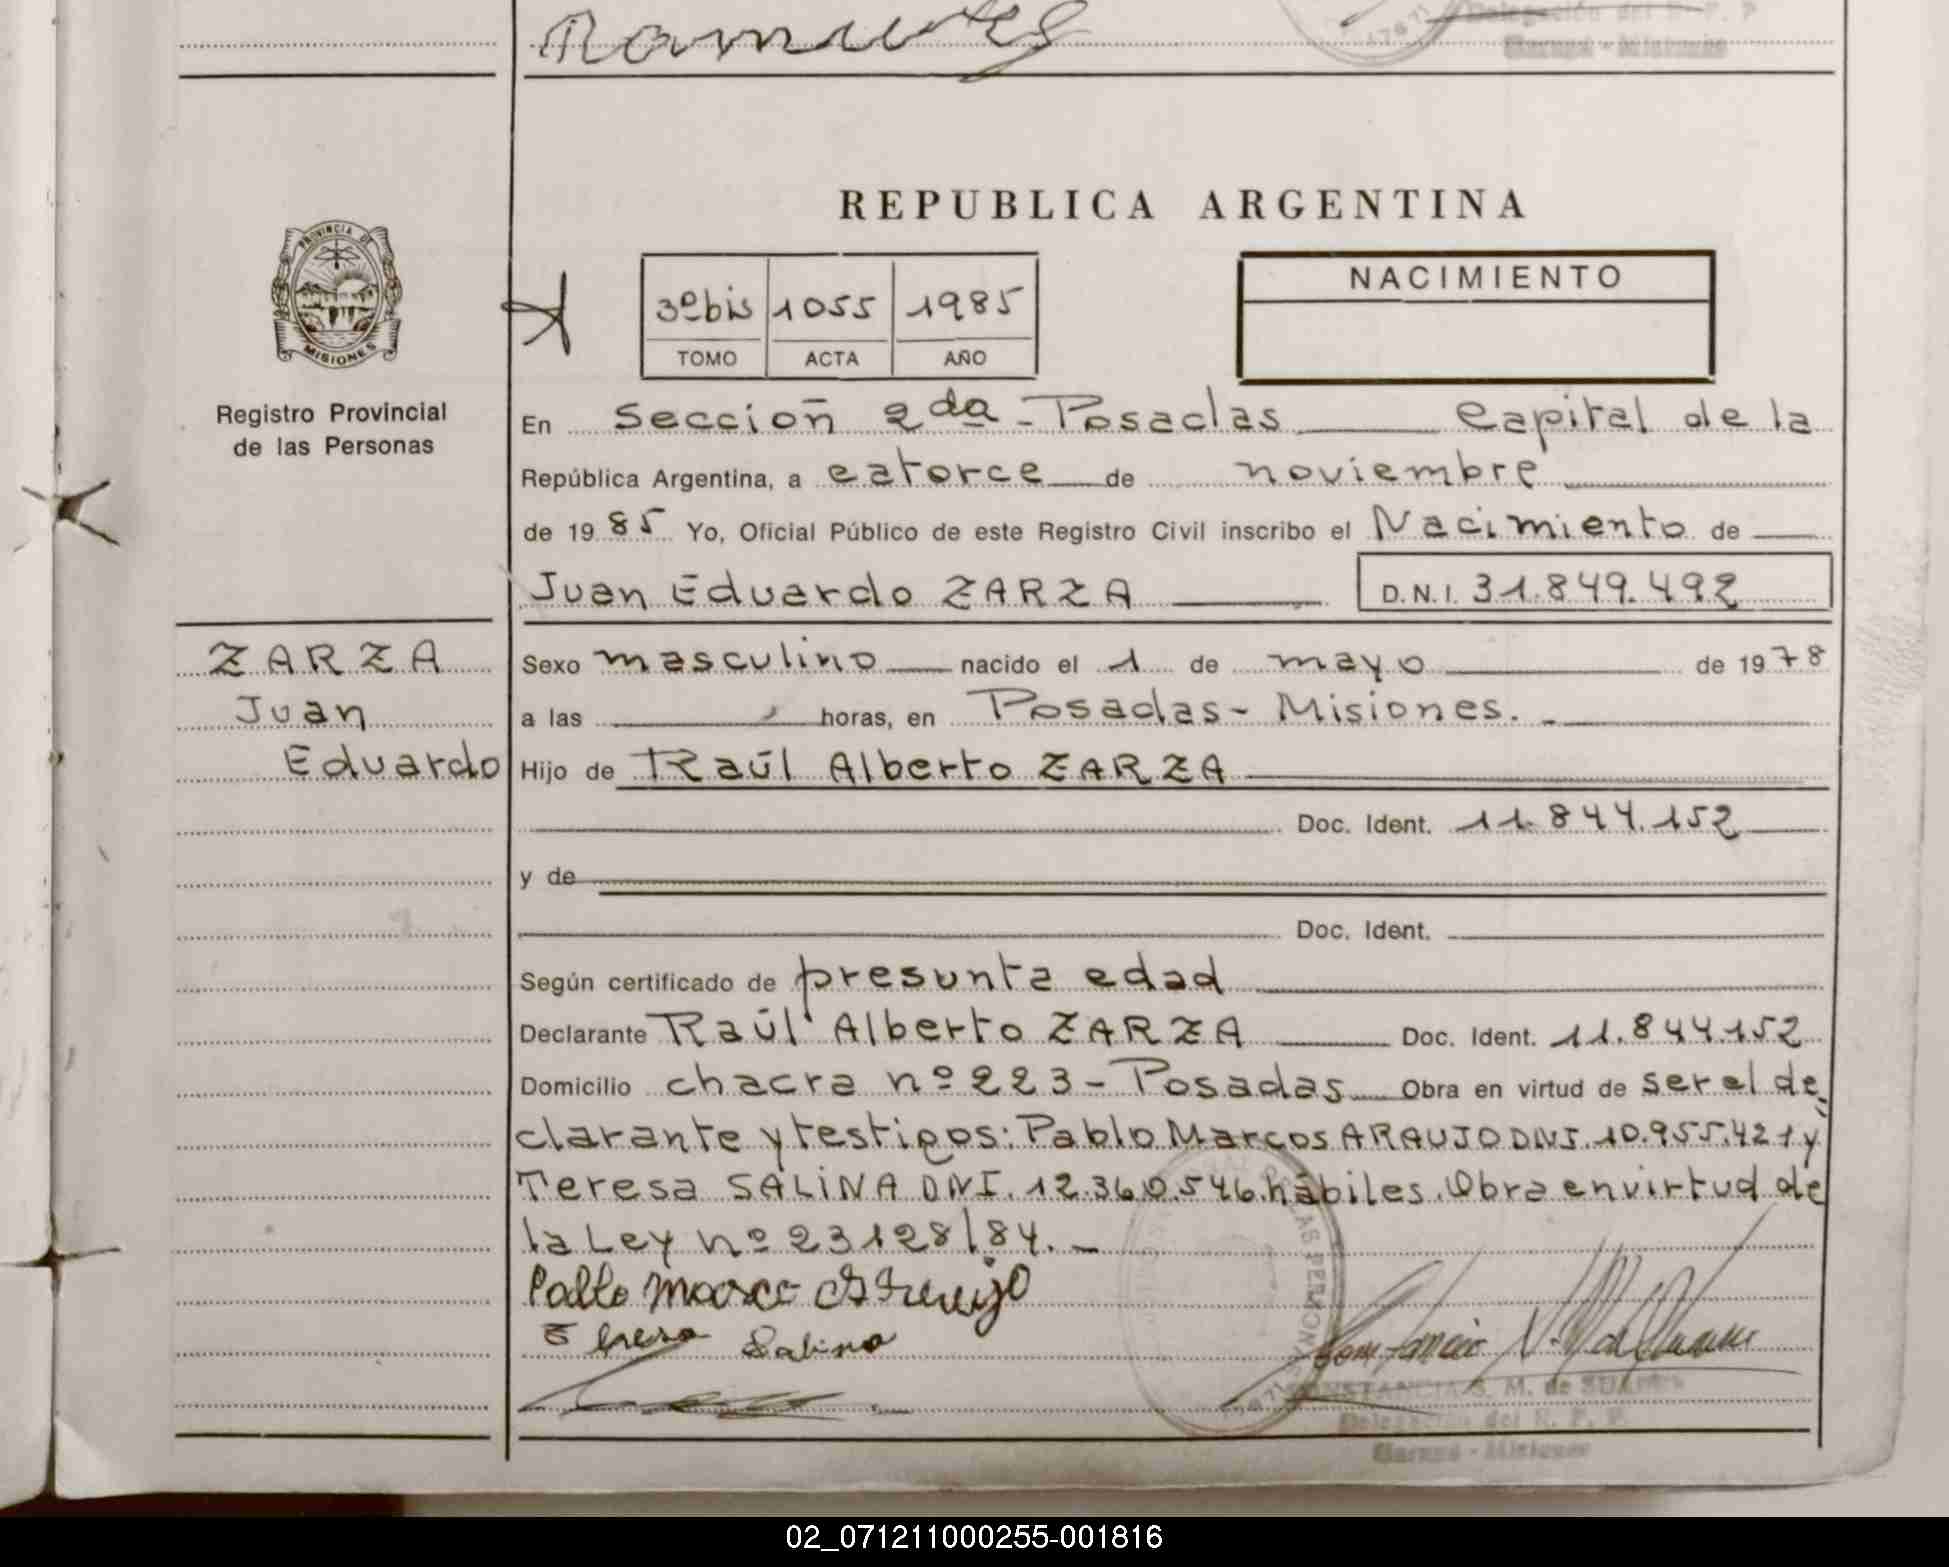 Ramirez
Delegación del R. P. P
Garupá - Misiones
REPUBLICA ARGENTINA
PROVINCIA DE
MISIONES
Registro Provincial
de las Personas
3º bis 1055 1985
TOMO ACTA AÑO
NACIMIENTO
En Sección 2da - Posadas Capital de la
República Argentina, a catorce de noviembre
de 1985 Yo, Oficial Público de este Registro Civil inscribo el Nacimiento de
Juan Eduardo ZARZA D.N.I. 31.849.492
ZARZA
Juan
Eduardo
Sexo masculino nacido el 1 de mayo de 1978
a las horas, en Posadas - Misiones. -
Hijo de Raúl Alberto ZARZA
Doc. Ident. 11.844.152
y de
Doc. Ident.
Según certificado de presunta edad
Declarante Raúl Alberto ZARZA Doc. Ident. 11.844.152
Domicilio chacra nº 223 - Posadas Obra en virtud de ser el de
clarante y testigos: Pablo Marcos ARAUJO DNI. 10.955.421 y
Teresa SALINA DNI. 12.360.546 hábiles. Obra en virtud de
la Ley nº 23128/84. -
Pablo Marco Araujo
Teresa Salina
CONSTANCIA S. M. de SUAREZ
Delegación del R. P. P.
Garupá - Misiones
02_071211000255-001816